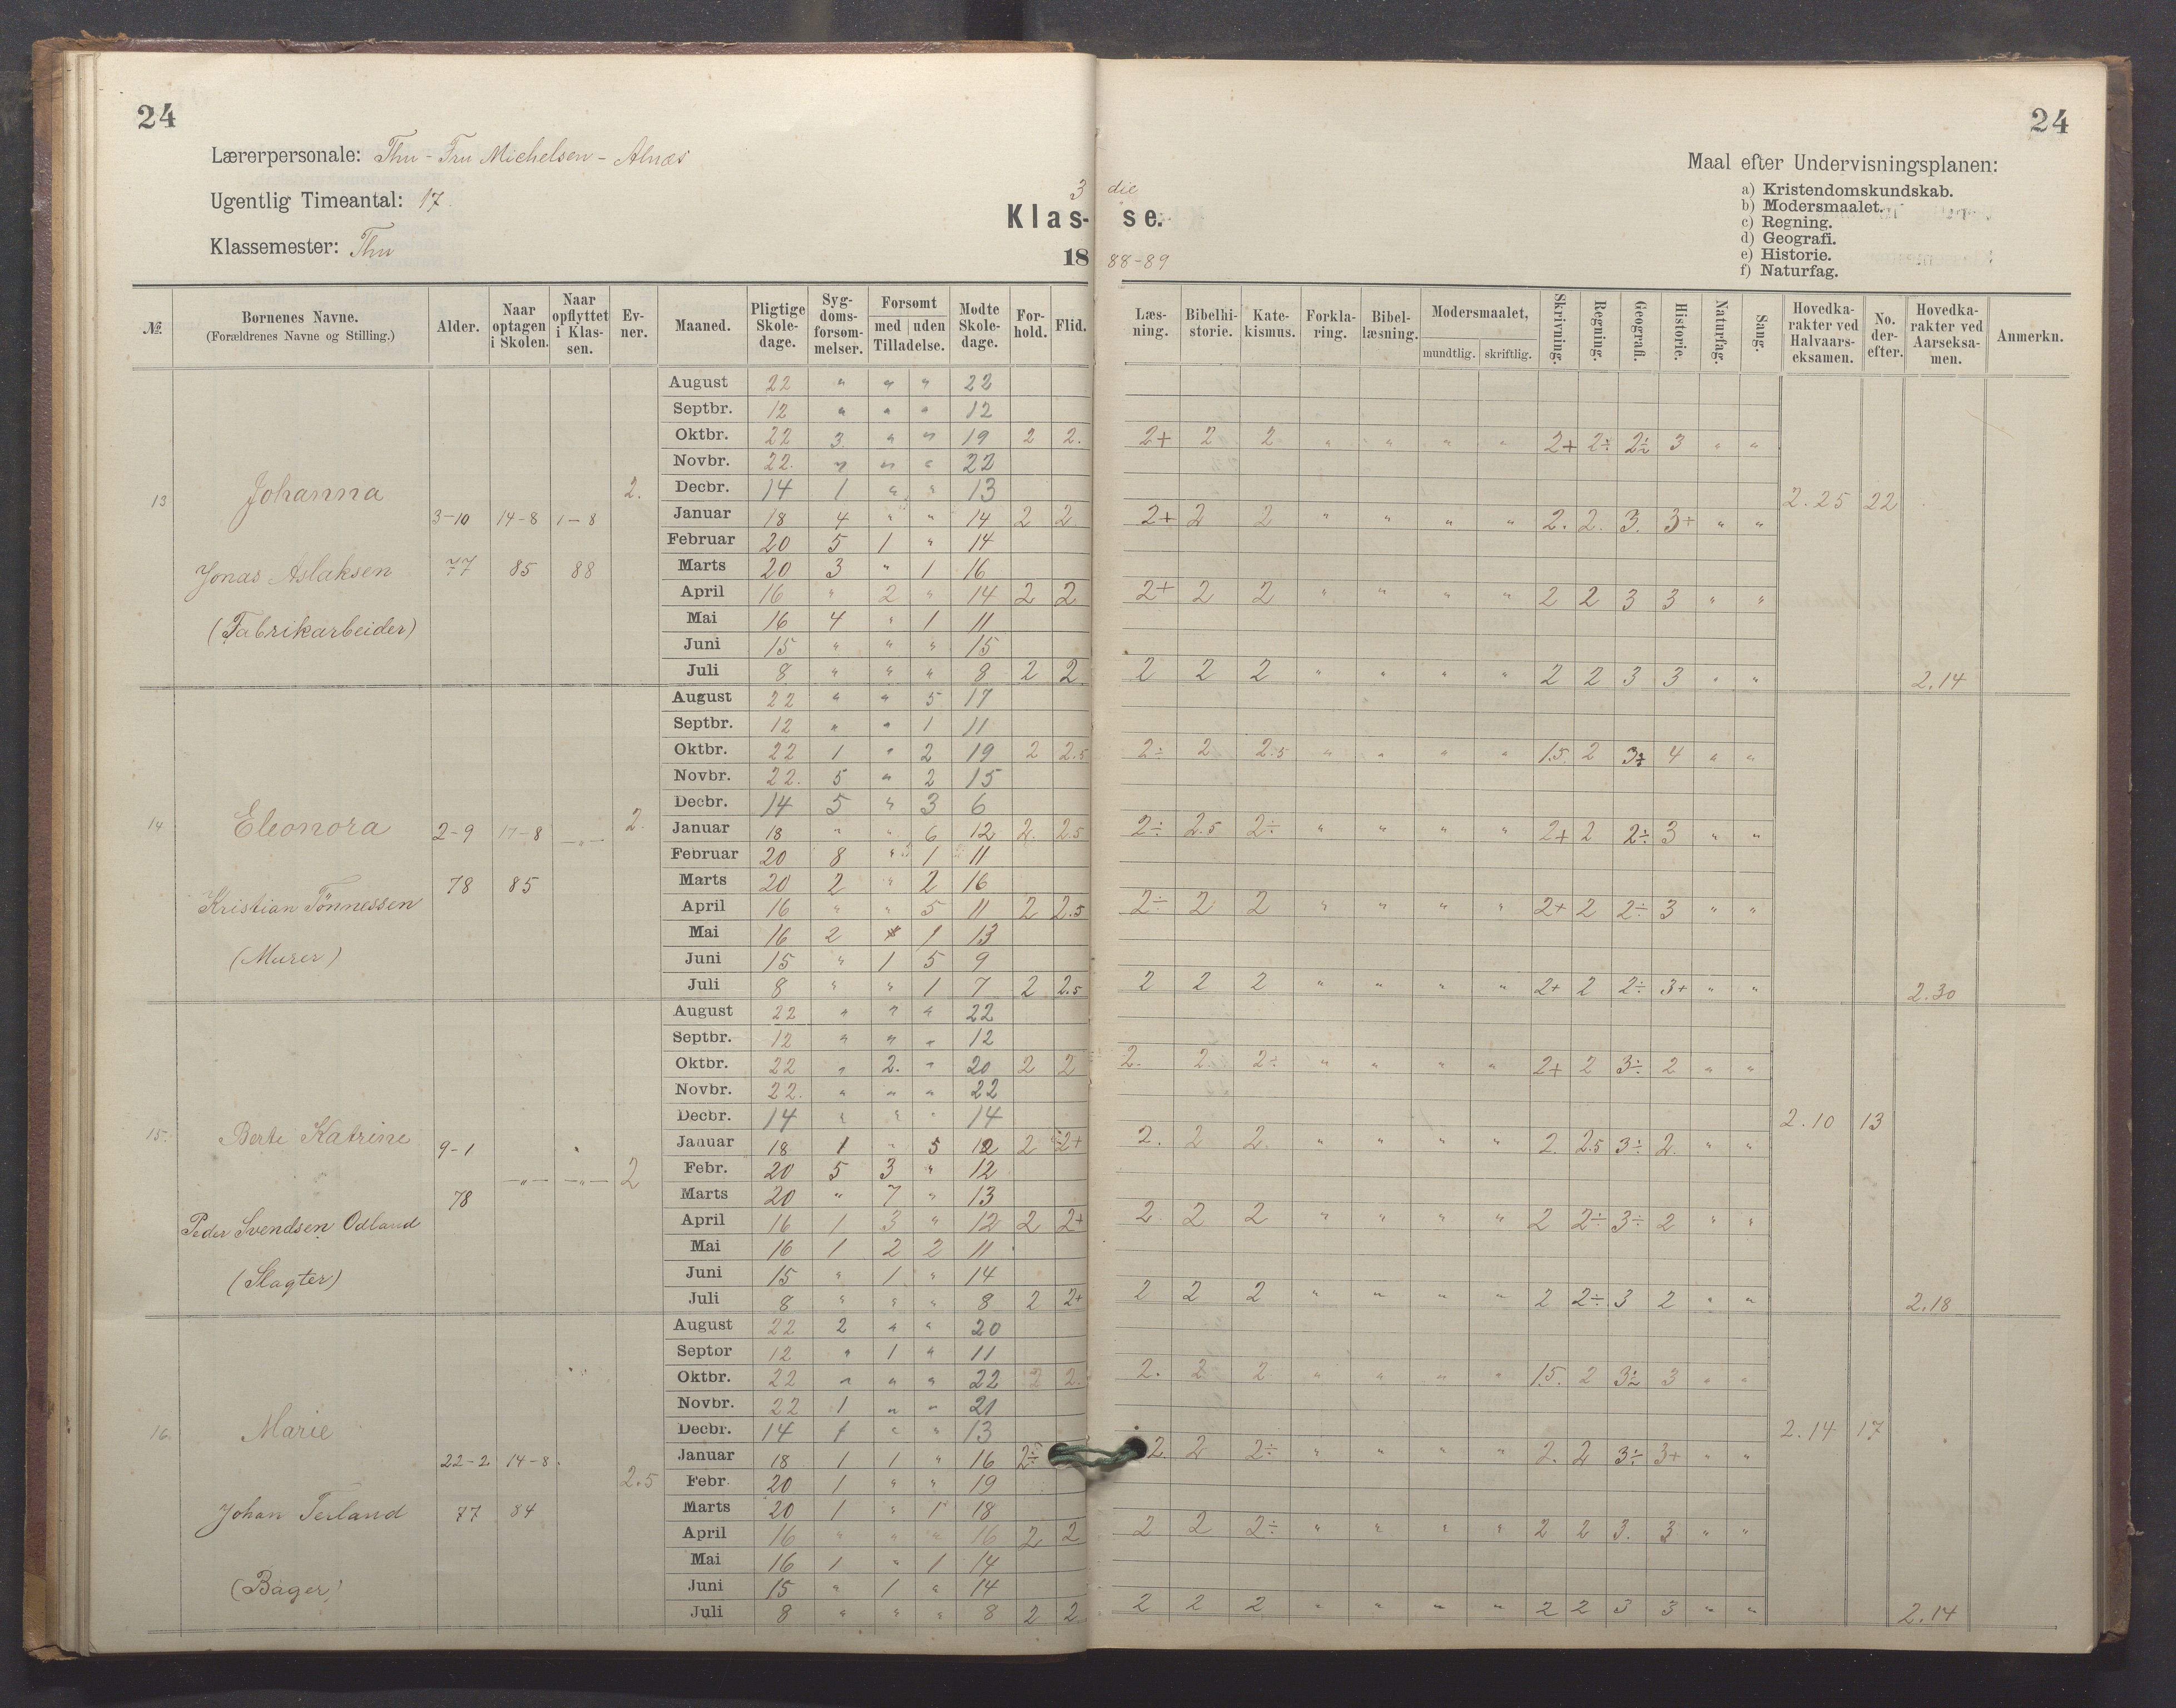 24
24
Lærerpersonale: Thu - Fru Michelsen - Alnæs
Ugentlig Timeantal: 17.
Klassemester: Thu
3 die
Klas- se.
18 88-89
Maal efter Undervisningsplanen:
a) Kristendomskundskab.
b) Modersmaalet.
c) Regning.
d) Geografi.
e) Historie.
f) Naturfag.
№ | Børnenes Navne. (Forældrenes Navne og Stilling.) | Alder. | Naar optagen i Skolen. | Naar opflyttet i Klassen. | Evner. | Maaned. | Pligtige Skoledage. | Sygdomsforsømmelser. | Forsømt med uden Tilladelse. | Mødte Skoledage. | Forhold. | Flid. | Læsning. | Bibelhistorie. | Katekismus. | Forklaring. | Bibellæsning. | Modersmaalet, mundtlig. skriftlig. | Skrivning. | Regning. | Geografi. | Historie. | Naturfag. | Sang. | Hovedkarakter ved Halvaarseksamen. | No. derefter. | Hovedkarakter ved Aarseksamen. | Anmerkn.
13 Johanna 3-10 77 14-8 85 1-8 88 2.
Jonas Aslaksen
(Fabrikarbeider)
August 22 " " " 22
Septbr. 12 " " " 12
Oktbr. 22 3 " " 19 2 2. 2+ 2 2 " " " " 2+ 2÷ 2÷ 3 " "
Novbr. 22. " " " 22
Decbr. 14 1 " " 13 2.25 22
Januar 18 4 " " 14 2 2 2+ 2 2 " " " " 2. 2. 3. 3+ " "
Februar 20 5 1 " 14
Marts 20 3 " 1 16
April 16 " 2 " 14 2 2 2+ 2 2 " " " " 2 2 3 3 " "
Mai 16 4 " 1 11
Juni 15 " " " 15
Juli 8 " " " 8 2 2 2 2 2 " " " " 2 2 3 3 " " 2.14
14 Eleonora 2-9 78 17-8 85 —"— 2.
Kristian Tönnessen
(Murer)
August 22 " " 5 17
Septbr. 12 " " 1 11
Oktbr. 22 1 " 2 19 2 2.5 2÷ 2 2.5 " " " " 1.5 2 3÷ 4 " "
Novbr. 22. 5 " 2 15
Decbr. 14 5 " 3 6
Januar 18 " " 6 12 2. 2.5 2÷ 2.5 2÷ " " " " 2+ 2 2÷ 3 " "
Februar 20 8 " 1 11
Marts 20 2 " 2 16
April 16 " " 5 11 2 2.5 2÷ 2 2 " " " " 2+ 2 2÷ 3 " "
Mai 16 2 " 1 13
Juni 15 " 1 5 9
Juli 8 " " 1 7 2 2.5 2 2 2 " " " " 2+ 2 2÷ 3+ " " 2.30
15. Berte Katrine 9-1 78 —"— —"— 2
Peder Svendsen Odland
(Slagter)
August 22 " " " 22
Septbr. 12 " " " 12
Oktbr. 22 " 2. " 20 2 2 2. 2. 2÷ " " " " 2+ 2 3÷ 2 " "
Novbr. 22. " " " 22
Decbr. 14 " " " 14 2.10 13
Januar 18 1 " 5 12 2 2+ 2. 2 2. " " " " 2. 2.5 3÷ 2. " "
Febr. 20 5 3 " 12
Marts 20 " 7 " 13
April 16 1 3 " 12 2 2+ 2. 2 2 " " " " 2 2÷ 3÷ 2 " "
Mai 16 1 2 2 11
Juni 15 " 1 " 14
Juli 8 " " " 8 2 2+ 2 2 2 " " " " 2 2÷ 3 2 " " 2.18
16. Marie 22-2 77 14-8 84 2.5
Johan Teiland
(Bager)
August 22 2 " " 20
Septbr 12 " 1 " 11
Oktbr. 22 " " " 22 2 2. 2. 2 2 " " " " 1.5. 2 3÷ 3 " "
Novbr. 22 1 " " 21
Decbr. 14 1 " " 13 2.14 17
Januar 18 1 1 " 16 2÷ 2. 2 2÷ " " " " 2. 2 3÷ 3+ " "
Febr. 20 1 " " 19
Marts 20 1 " 1 18
April 16 " " " 16 2 2 2 2 2÷ " " " " 2 2 3. 3 " "
Mai 16 1 " 1 14
Juni 15 " 1 " 14
Juli 8 " " " 8 2 2 2 2 2 " " " " 2 2 3 3 " " 2.14